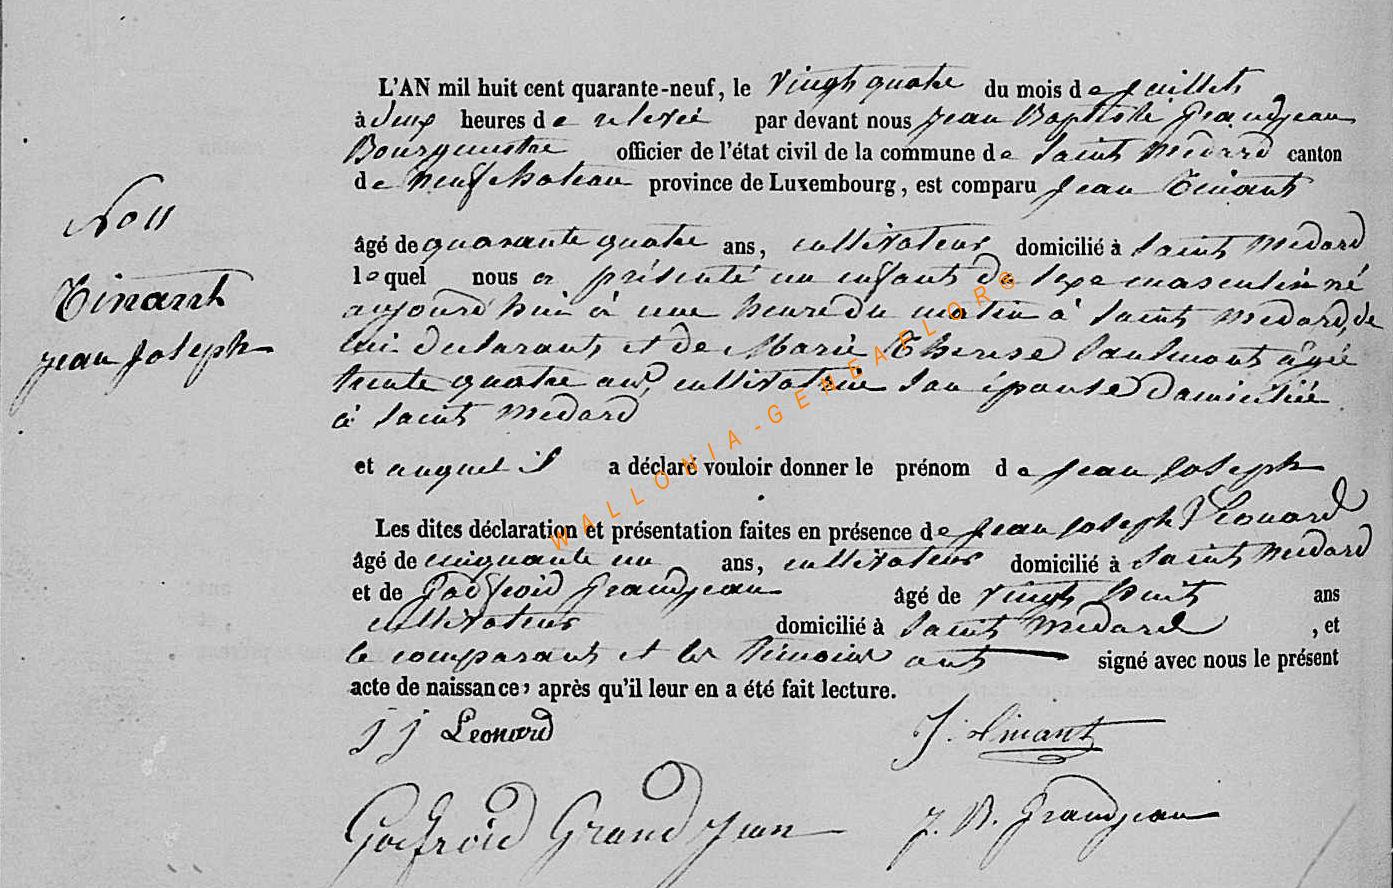 L'AN mil huit cent quarante-neuf, le vingt quatre du mois de juillet
à deux heures de relevée par devant nous jean Baptiste Grandjean
Bourgmestre officier de l'état civil de la commune de Saint Médard canton
de neufchateau province de Luxembourg, est comparu jean Tinant
âgé de quarante quatre ans, cultivateur domicilié à Saint Médard
lequel nous a présenté un enfant du sexe masculin né
aujourd'hui à une heure du matin à Saint Médard, de
lui declarant, et de Marie Therese Saulmont âgée
trente quatre ans, cultivatrice son épouse domiciliée
à Saint Médard
et auquel il a déclaré vouloir donner le prénom de jean joseph
Les dites déclaration et présentation faites en présence de jean joseph Léonard
âgé de cinquante un ans, cultivateur domicilié à Saint Médard
et de Godfroid Grandjean âgé de vingt huit ans
cultivateur domicilié à Saint Médard , et
le comparant et les témoins ont signé avec nous le présent
acte de naissance, après qu'il leur en a été fait lecture.
Tinant
jean joseph
j j Leonard
J. Tinant
Godfroid Grandjean
J. B. Grandjean
WALLONIA-GENEAFLORG